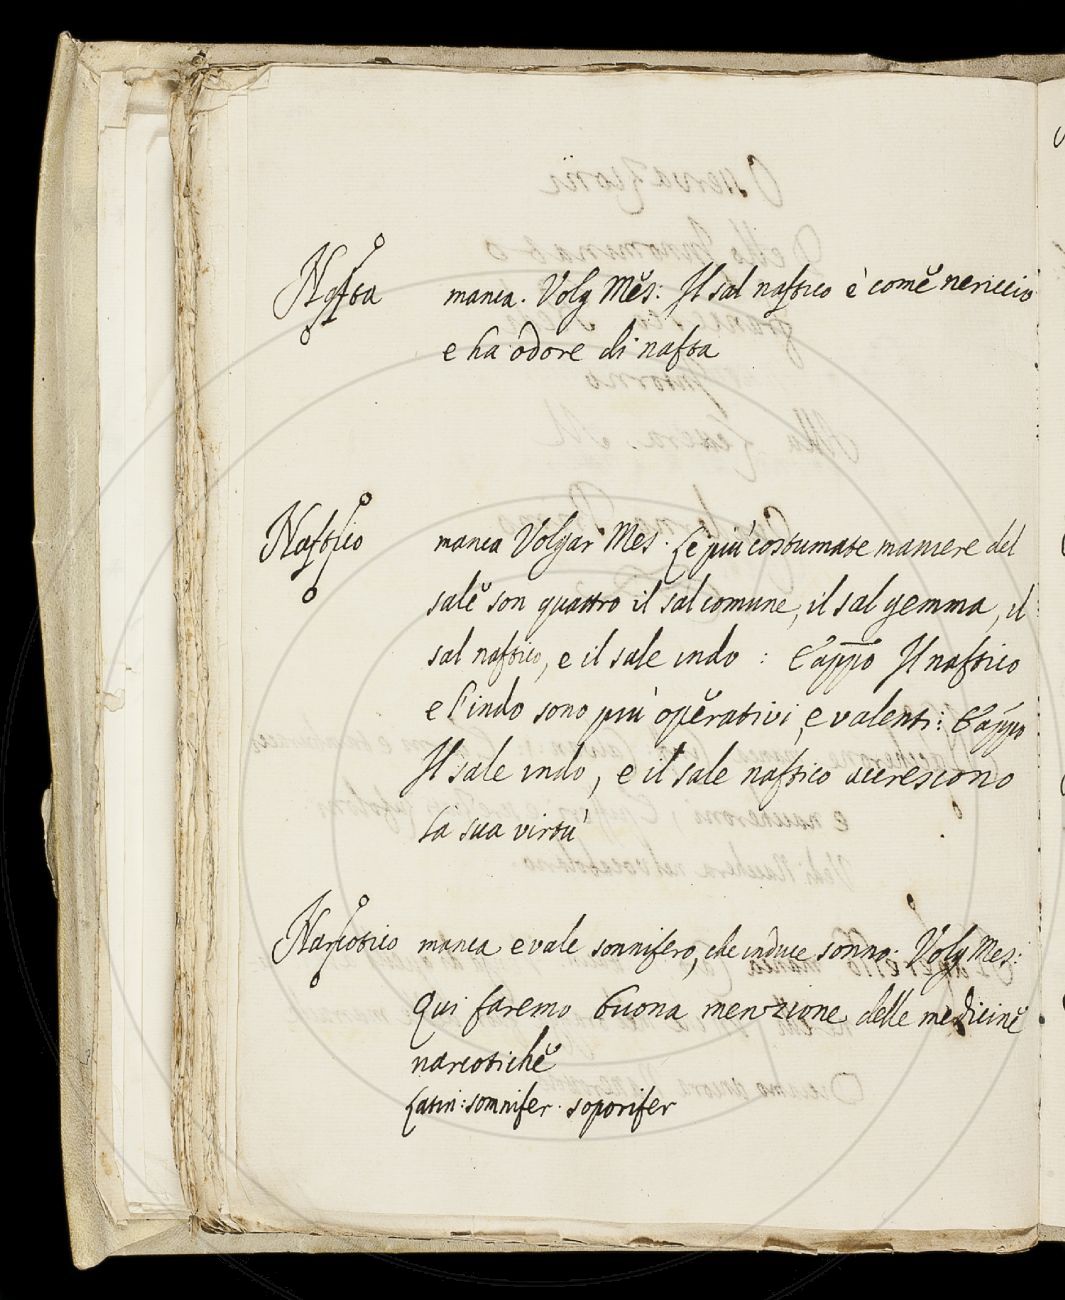 Nafta manca. Volg Mes: Il sal naftico è come nericcio
e ha odore di nafta
Naftico manca Volgar Mes. Le più costumate maniere del
sale son quattro il sal comune, il sal gemma, il
sal naftico, e il sale indo : E appo Il naftico
e l'indo sono più operativi, e valenti: E appo
Il sale indo, e il sale naftico accrescono
la sua virtù
Narcotico manca e vale sonnifero, che induce sonno. Volg Mes:
Qui faremo buona menzione delle medicine
narcotiche
Latin: somnifer. soporifer